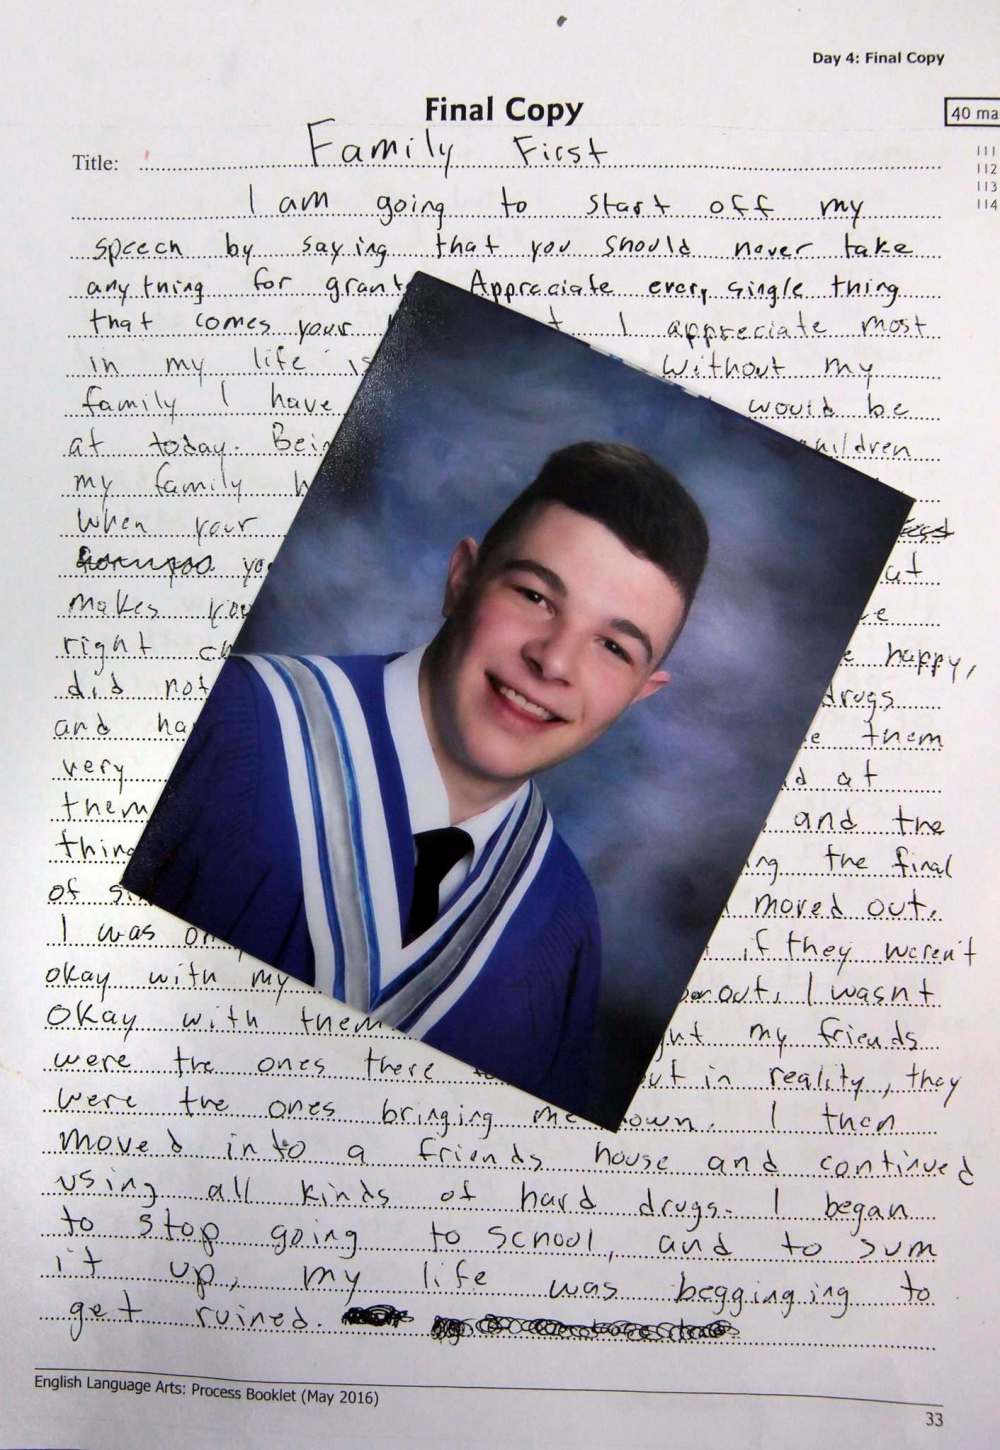 Day 4: Final Copy
Final Copy
40 ma
Title: Family First
111
112
113
114
I am going to start off my
speech by saying that you should never take
anything for grant Appreciate every single thing
that comes your I appreciate most
in my life is Without my
family I have would be
at today. Bei children
my family h
When your
yo at
makes you e
right ch e happy,
did not drugs
and ha e them
very d at
them and the
thing ng the final
of si moved out.
I was on if they weren't
okay with my out, I wasnt
okay with them ght my friends
were the ones there ut in reality, they
were the ones bringing me own. I then
moved into a friends house and continued
using all kinds of hard drugs. I began
to stop going to school, and to sum
it up, my life was begginging to
get ruined.
English Language Arts: Process Booklet (May 2016)
33